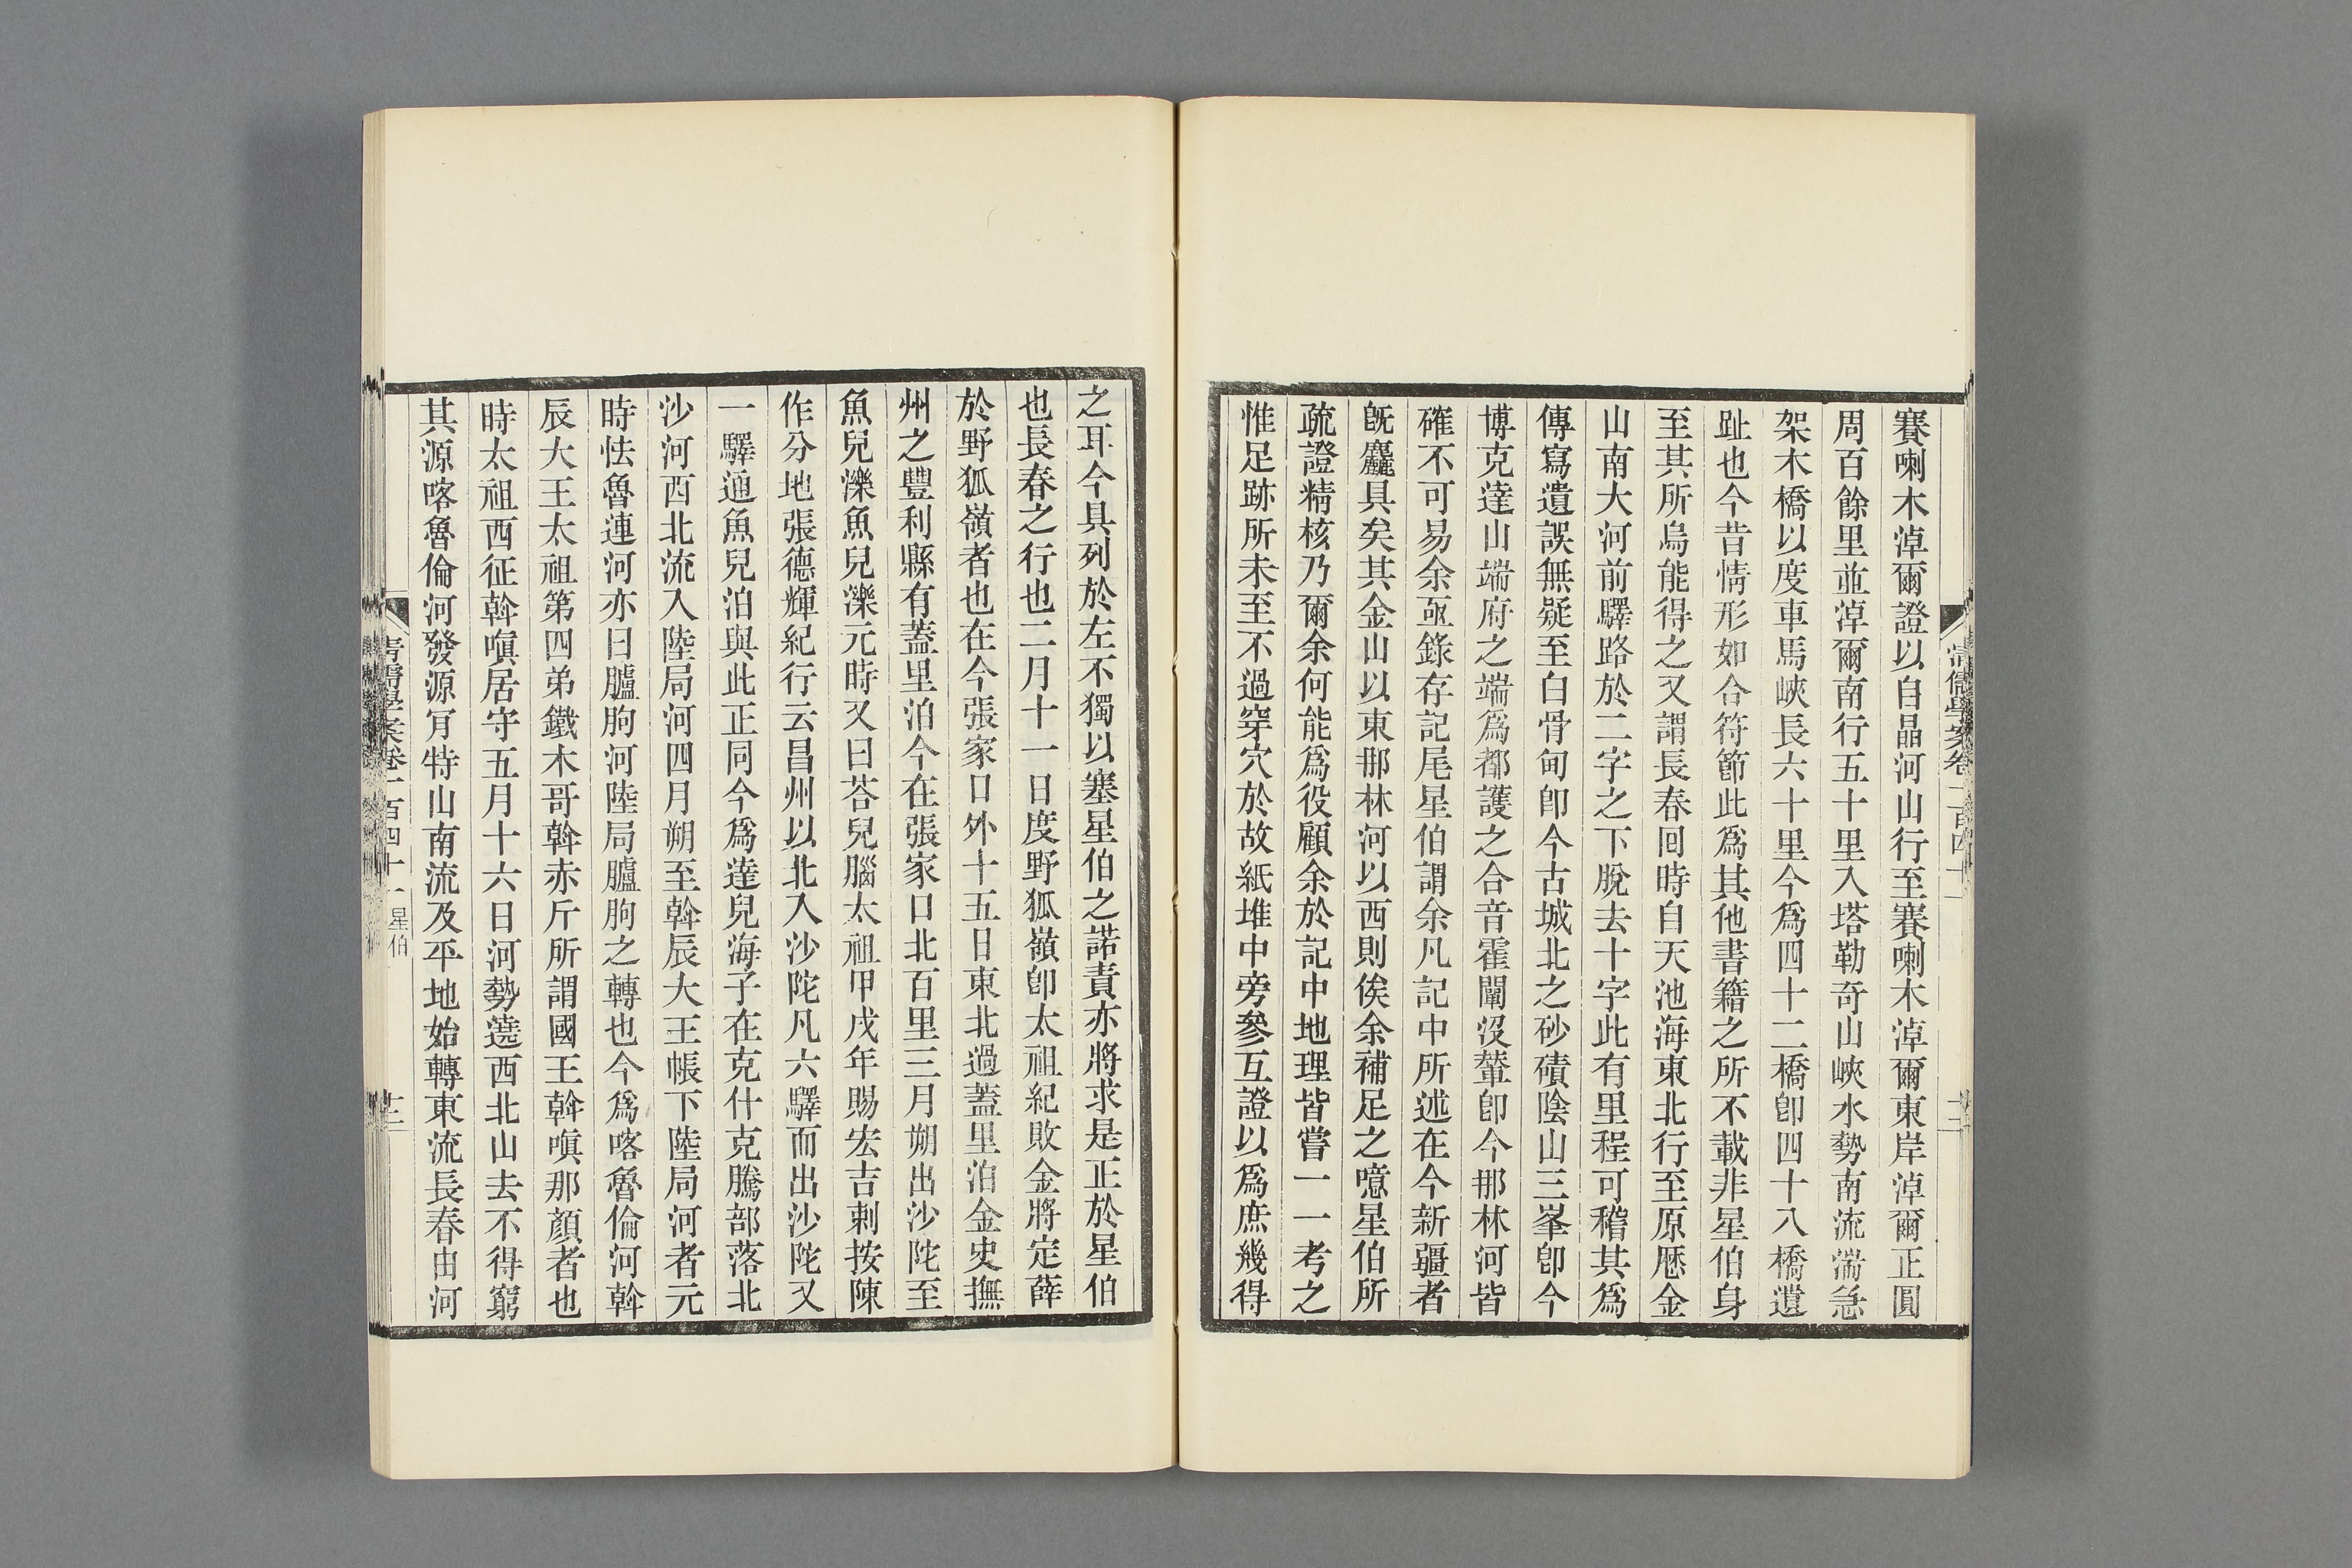 賽喇木淖爾證以自晶河山行至賽喇木淖爾東岸淖爾正圓
周百餘里並淖爾南行五十里入塔勒奇山峽水勢南流湍急
架木橋以度車馬峽長六十里今爲四十二橋卽四十八橋遺
趾也今昔情形如合符節此爲其他書籍之所不載非星伯身
至其所烏能得之又謂長春回時自天池海東北行至原厯金
山南大河前驛路於二字之下脫去十字此有里程可稽其爲
傳寫遺誤無疑至白骨甸卽今古城北之砂磧陰山三峯卽今
博克達山端府之端爲都護之合音霍闡沒輦卽今那林河皆
確不可易余亟錄存記尾星伯謂余凡記中所述在今新疆者
旣麤具矣其金山以東那林河以西則俟余補足之噫星伯所
疏證精核乃爾余何能爲役顧余於記中地理皆嘗一一考之
惟足跡所未至不過穿穴於故紙堆中旁參互證以爲庶幾得
之耳今具列於左不獨以塞星伯之諾責亦將求是正於星伯
也長春之行也二月十一日度野狐嶺卽太祖紀敗金將定薛
於野狐嶺者也在今張家口外十五日東北過蓋里泊金史撫
州之豐利縣有蓋里泊今在張家口北百里三月朔出沙陀至
魚兒濼魚兒濼元時又曰荅兒腦太祖甲戌年賜宏吉剌按陳
作分地張德輝紀行云昌州以北入沙陀凡六驛而出沙陀又
一驛過魚兒泊與此正同今爲達兒海子在克什克騰部落北
沙河西北流入陸局河四月朔至斡辰大王帳下陸局河者元
時怯魯連河亦曰臚朐河陸局臚朐之轉也今爲喀魯倫河斡
辰大王太祖第四弟鐵木哥斡赤斤所謂國王斡嗔那顏者也
時太祖西征斡嗔居守五月十六日河勢遶西北山去不得窮
其源喀魯倫河發源肯特山南流及平地始轉東流長春由河
清儒學案卷一百四十一 星伯